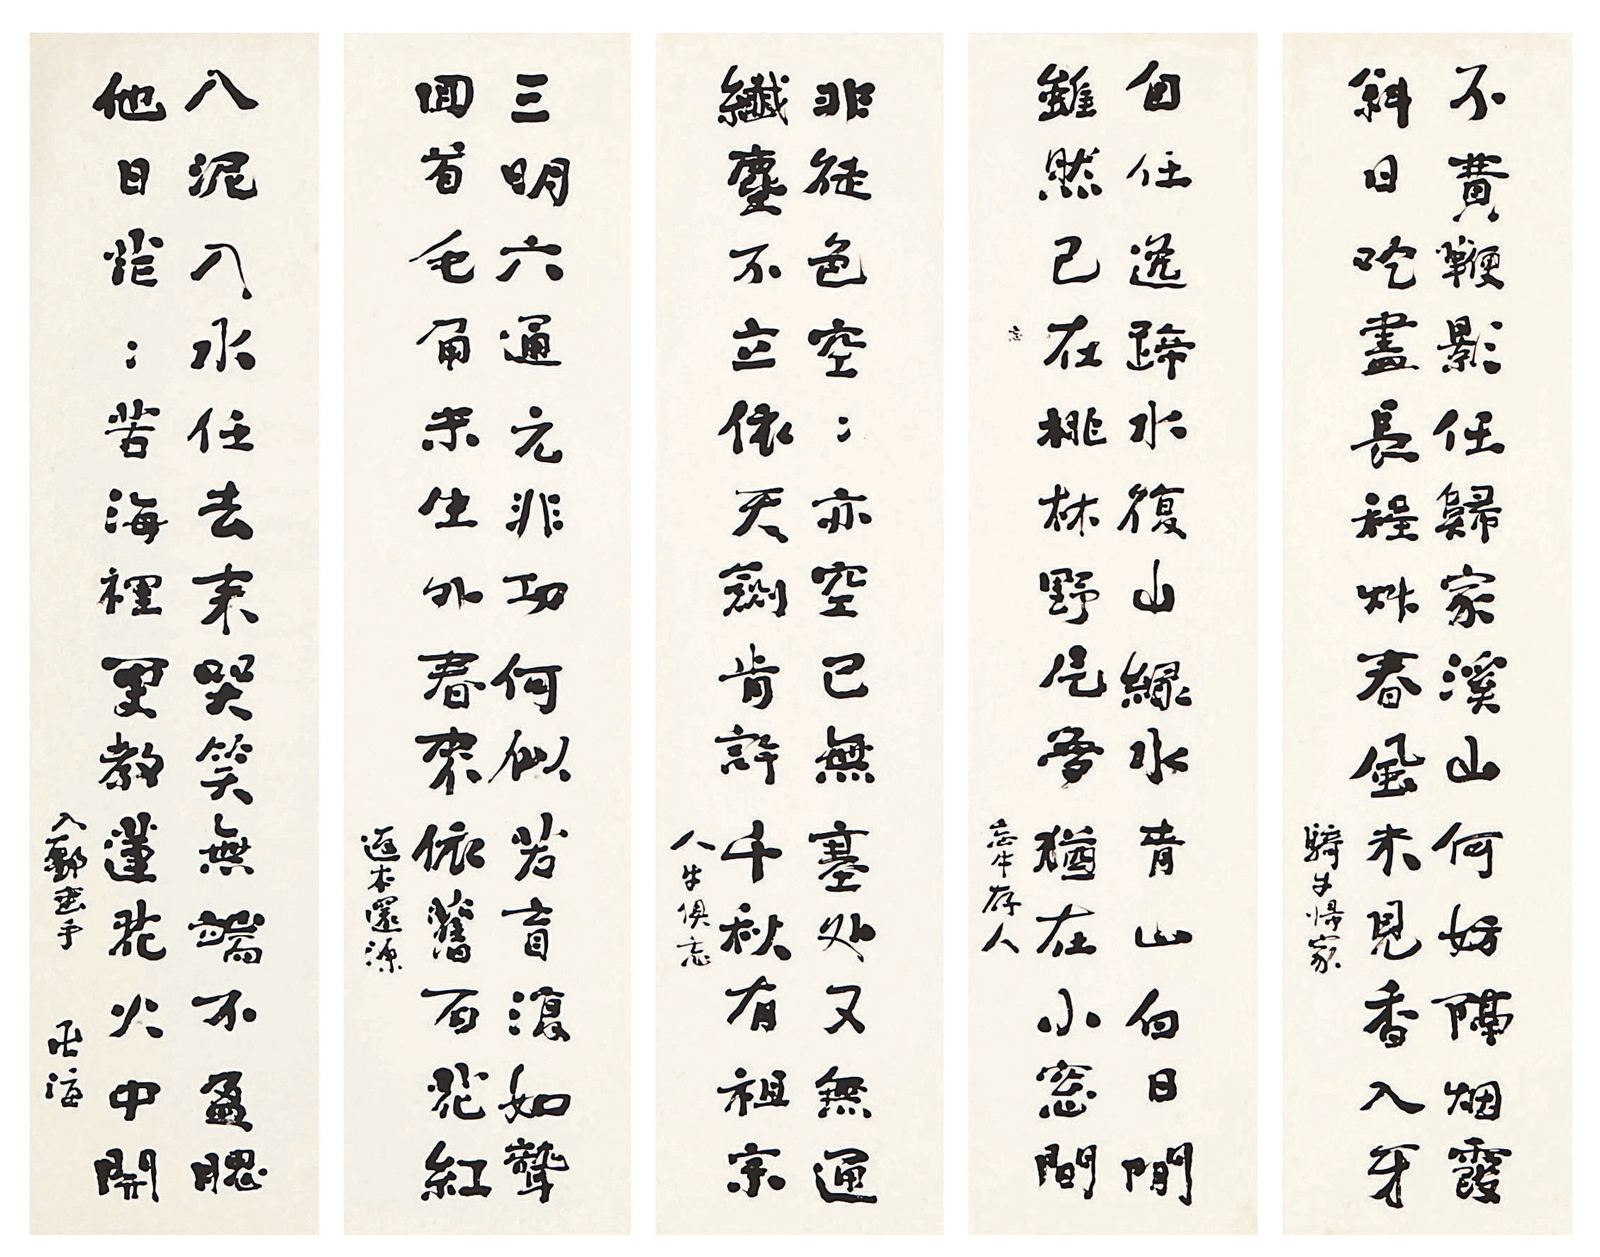 不費鞭影任歸家溪山何妨隔烟霞
斜日吃盡長程艸春風未見香入牙
騎牛歸家
自任逸蹄水復山綠水青山白日閒
雖然已在桃林野片夢猶在小窓間
忘牛存人
非徒色空〻亦空已無塞処又無通
纖塵不立依天劍肯許千秋有祖宗
人牛俱忘
三明六通元非功何似若盲復如聾
回首毛角未生外春來依舊百花紅
返本還源
入泥入水任去來哭笑無端不盈腮
他日茫〻苦海裡更教蓮花火中開
入鄽垂手 卍海